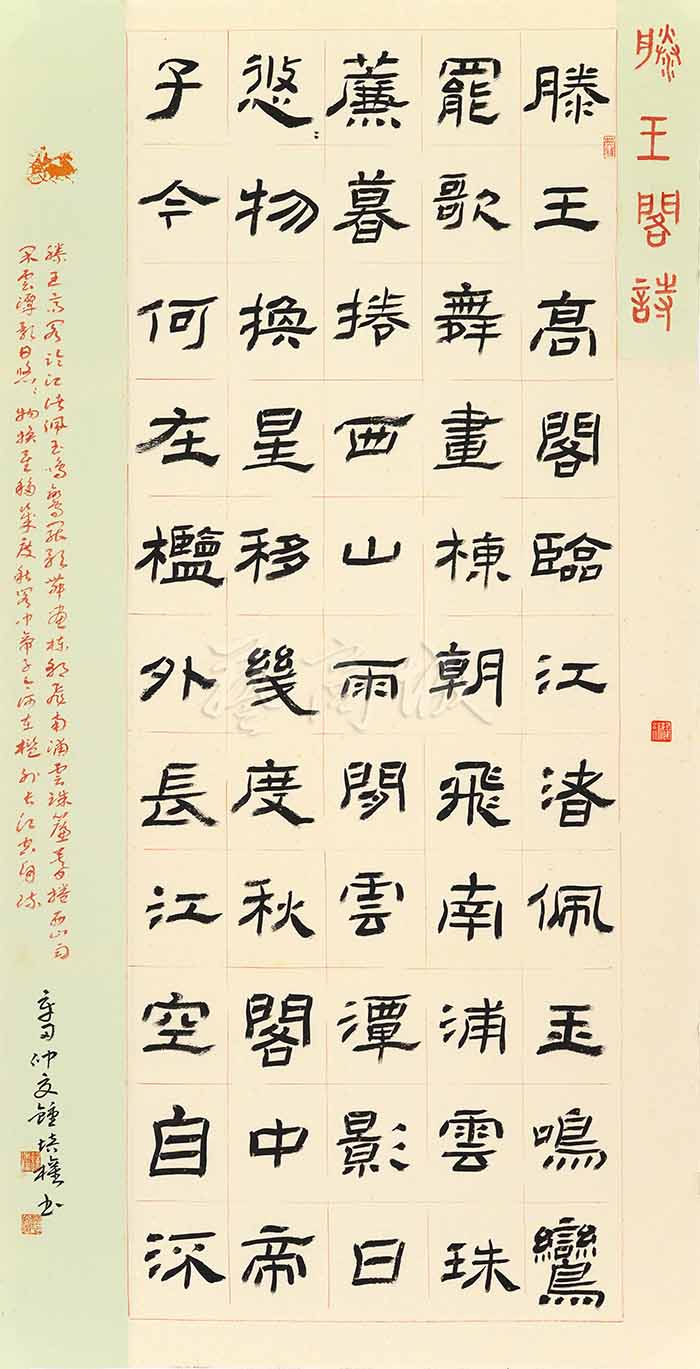 滕王閣詩
滕王高閣臨江渚佩玉鳴鸞
罷歌舞畫棟朝飛南浦雲珠
簾暮捲西山雨閒雲潭影日
悠〻物換星移幾度秋閣中帝
子今何在檻外長江空自流
滕王高閣臨江渚佩玉鳴鸞罷歌舞畫棟朝飛南浦雲珠簾暮捲西山雨
閒雲潭影日悠〻物換星移幾度秋閣中帝子今何在檻外長江空自流
辛丑仲夏鍾培權书